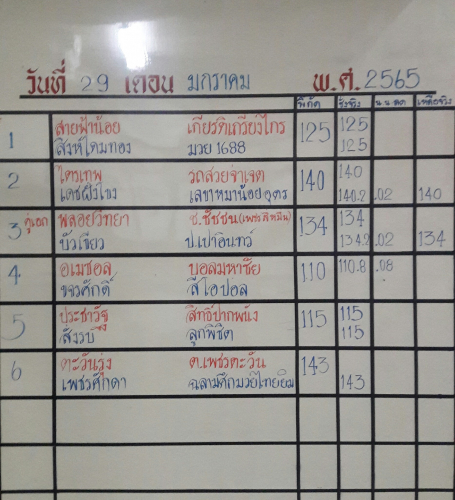 วันที่ 29 เดือน มกราคม พ.ศ. 2565
พิกัด ชั่งจริง น.น.ลด เหลือจริง
1 สายฟ้าน้อย เกียรติเกรียงไกร 125 125
สิงห์โดมทอง มวย 1688 125
2 ไตรเทพ รถสวยจ่าเจต 140 140
เลขาหมาน้อยอุดร 140.2 .02 140
3 คู่เอก พลอยวิทยา ช.ชัชชน 134 134
บัวเขียว ป.เปาอินทร์ 134.2 .02 134
4 อเมซอล บอลมหาชัย 110 110.8 .08
ขจรศักดิ์ สีโอปอล
5 ประชารัฐ สิทธิ์ปากพนัง 115 115
สังรบ ลูกพิชิต 115
6 ตะวันรุ่ง ต.เพชรตะวัน 143
เพชรศักดา ฉลามศึกมวยไทยยิม 143